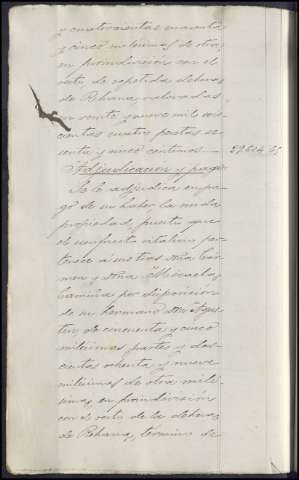 y cuatrocientas cuarenta
y cinco milecimas de otra
en proindivision con el
resto de repetida dehesa
de Rehana, valoradas
en veinte y nueve mil seis
cientas cuatro pesetas se
senta y cinco centimos — 29.604 65
Adjudicacion y pago
Se le adjudica en pa-
go de su haber la nuda
propiedad, puesto que
el usufructo vitalicio per-
tenece a sus tias Dña Car-
men y Dña Micaela,
por disposicion
de su hermano Dn Agus-
tin, de cincuenta y cinco
milecimas partes y dos-
cientas ochenta y nueve
milecimas de otra mile-
cima, en proindivision
con el resto de la dehesa
de Rehana, término de